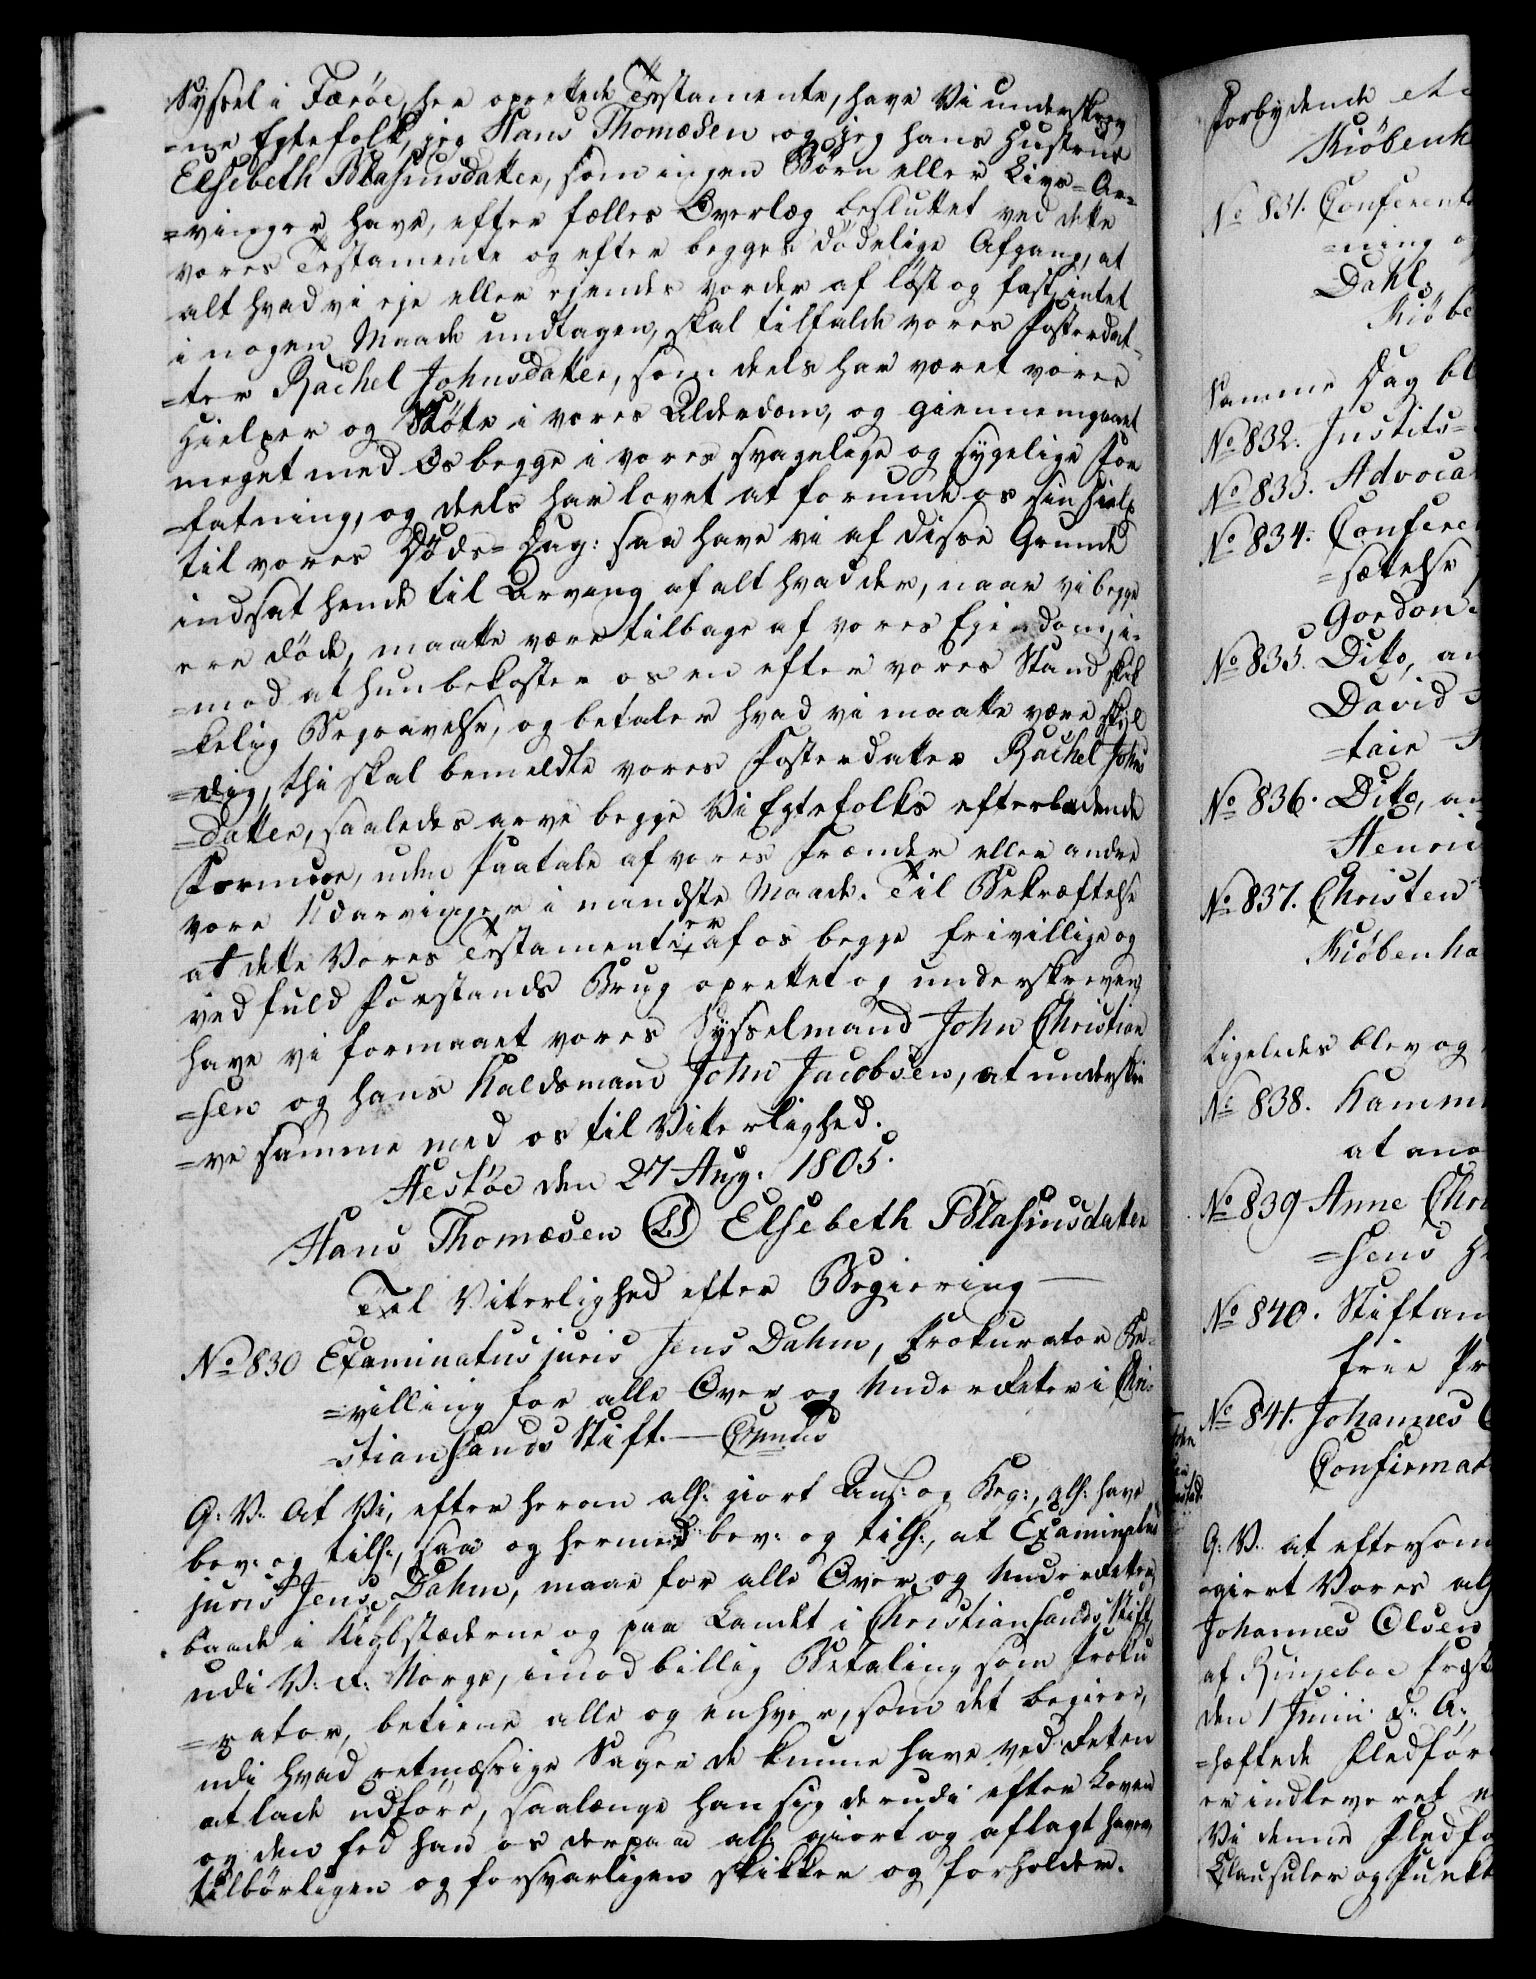 Syssel i Færöe, her oprettede Testamente, have Vi underskrev
=ne Egtefolk, jeg Hans Thomæsen og jeg hans Hustrue
Elsebeth Blasiusdatter, som ingen Börn eller Livs=Ar=
=vinger have, efter fælles Overlæg besluttet ved dette
vores Testamente og efter begges dödelige Afgang, at
alt hvad vi eje eller ejendes vorder af löst og fast, intet
i nogen Maade undtagen, skal tilfalde vores Fosterdat=
=ter Rachel Johnsdatter, som deels har været vores
Hielper og Stötte i vores Alderdom, og giennemgaaet
meget med Os begge i vores svagelige og sygelige For
=fatning, og deels har lovet at forunde os sin Hielp
til vores Döds=Dag: saa have vi af disse Grunde
indsat hende til Arving af alt hvad der, naar vi begge
ere döde, maatte være tilbage af vores Ejendom, i=
=mod at hun bekoster os en efter vores Stand skik
=kelig Begravelse, og betaler hvad vi maatte være skyl
=dig, thi skal bemeldte vores Fosterdatter Rachel Johns
=datter, saaledes arve begge Vi Egtefolks efterladende
Formue, uden Paatale af vores Frænder eller andre
vore Udarvinger i mindste Maade. Til Bekræftelse
at dette Vores Testament er af os begge frivillige og
ved fuld Forstands Brug oprettet og underskreven,
have vi formaaet vores Sysselmand John Christian
=sen og hans Kaldsmand John Jacobsen, at underskri
=ve samme med os til Vitterlighed.
Hestöe den 27 Aug. 1805.
Hans Thomæsen (LS) Elsebeth Blasiusdatter
Til Vitterlighed efter Begiering —
No 830 Examinatus juris Jens Dahm, Prokurator Be=
=villing for alle Over og Underretter i Chri=
=stiansands Stift. — Gratis
G: V. At Vi, efter herom all: giort Ans: og Beg:, all: have
bev: og till:, saa og hermed bev: og till:, at Examinatus
juris Jens Dahm, maae for alle Over og Underretter,
baade i Kiöbstæderne og paa Landet i Christiansands Stift,
udi V: R: Norge, imod billig Betaling som Proku
=rator, betiene alle og enhver, som det begierer,
udi hvad retmæssige Sager de kunne have ved Retten
at lade udföre, saalænge han sig derudi efter Loven
og den Eed han os derpaa all: giort og aflagt haver,
tilbörligen og forsvarligen skikker og forholder.
Forbydende
Kiöbenh
No 831. Conferents
=ning
Dahl,
Kiöbe
Samme Dag bl
No 832. Justits=
No 833. Advoca
No 834. Conferen
=sættelse
Gordon
No 835. Ditto, an
David
=tair
No 836. Ditto, an
Henri
No 837. Christen
Kiöbenha
Ligeledes blev og
No 838. Kamm
at ano
No 839 Anne Chri
=sens H
No 840. Stiftam
frie Pr
No 841. Johannes O
Confirmat
G: V. at eftersom
=giort Vores all
Johannes Olsen
af Ringeboe Præst
den 1 Junii d: A:,
=hæftede Fledför
er indleveret
Vi denne Fledfö
Clausuler og Punkt